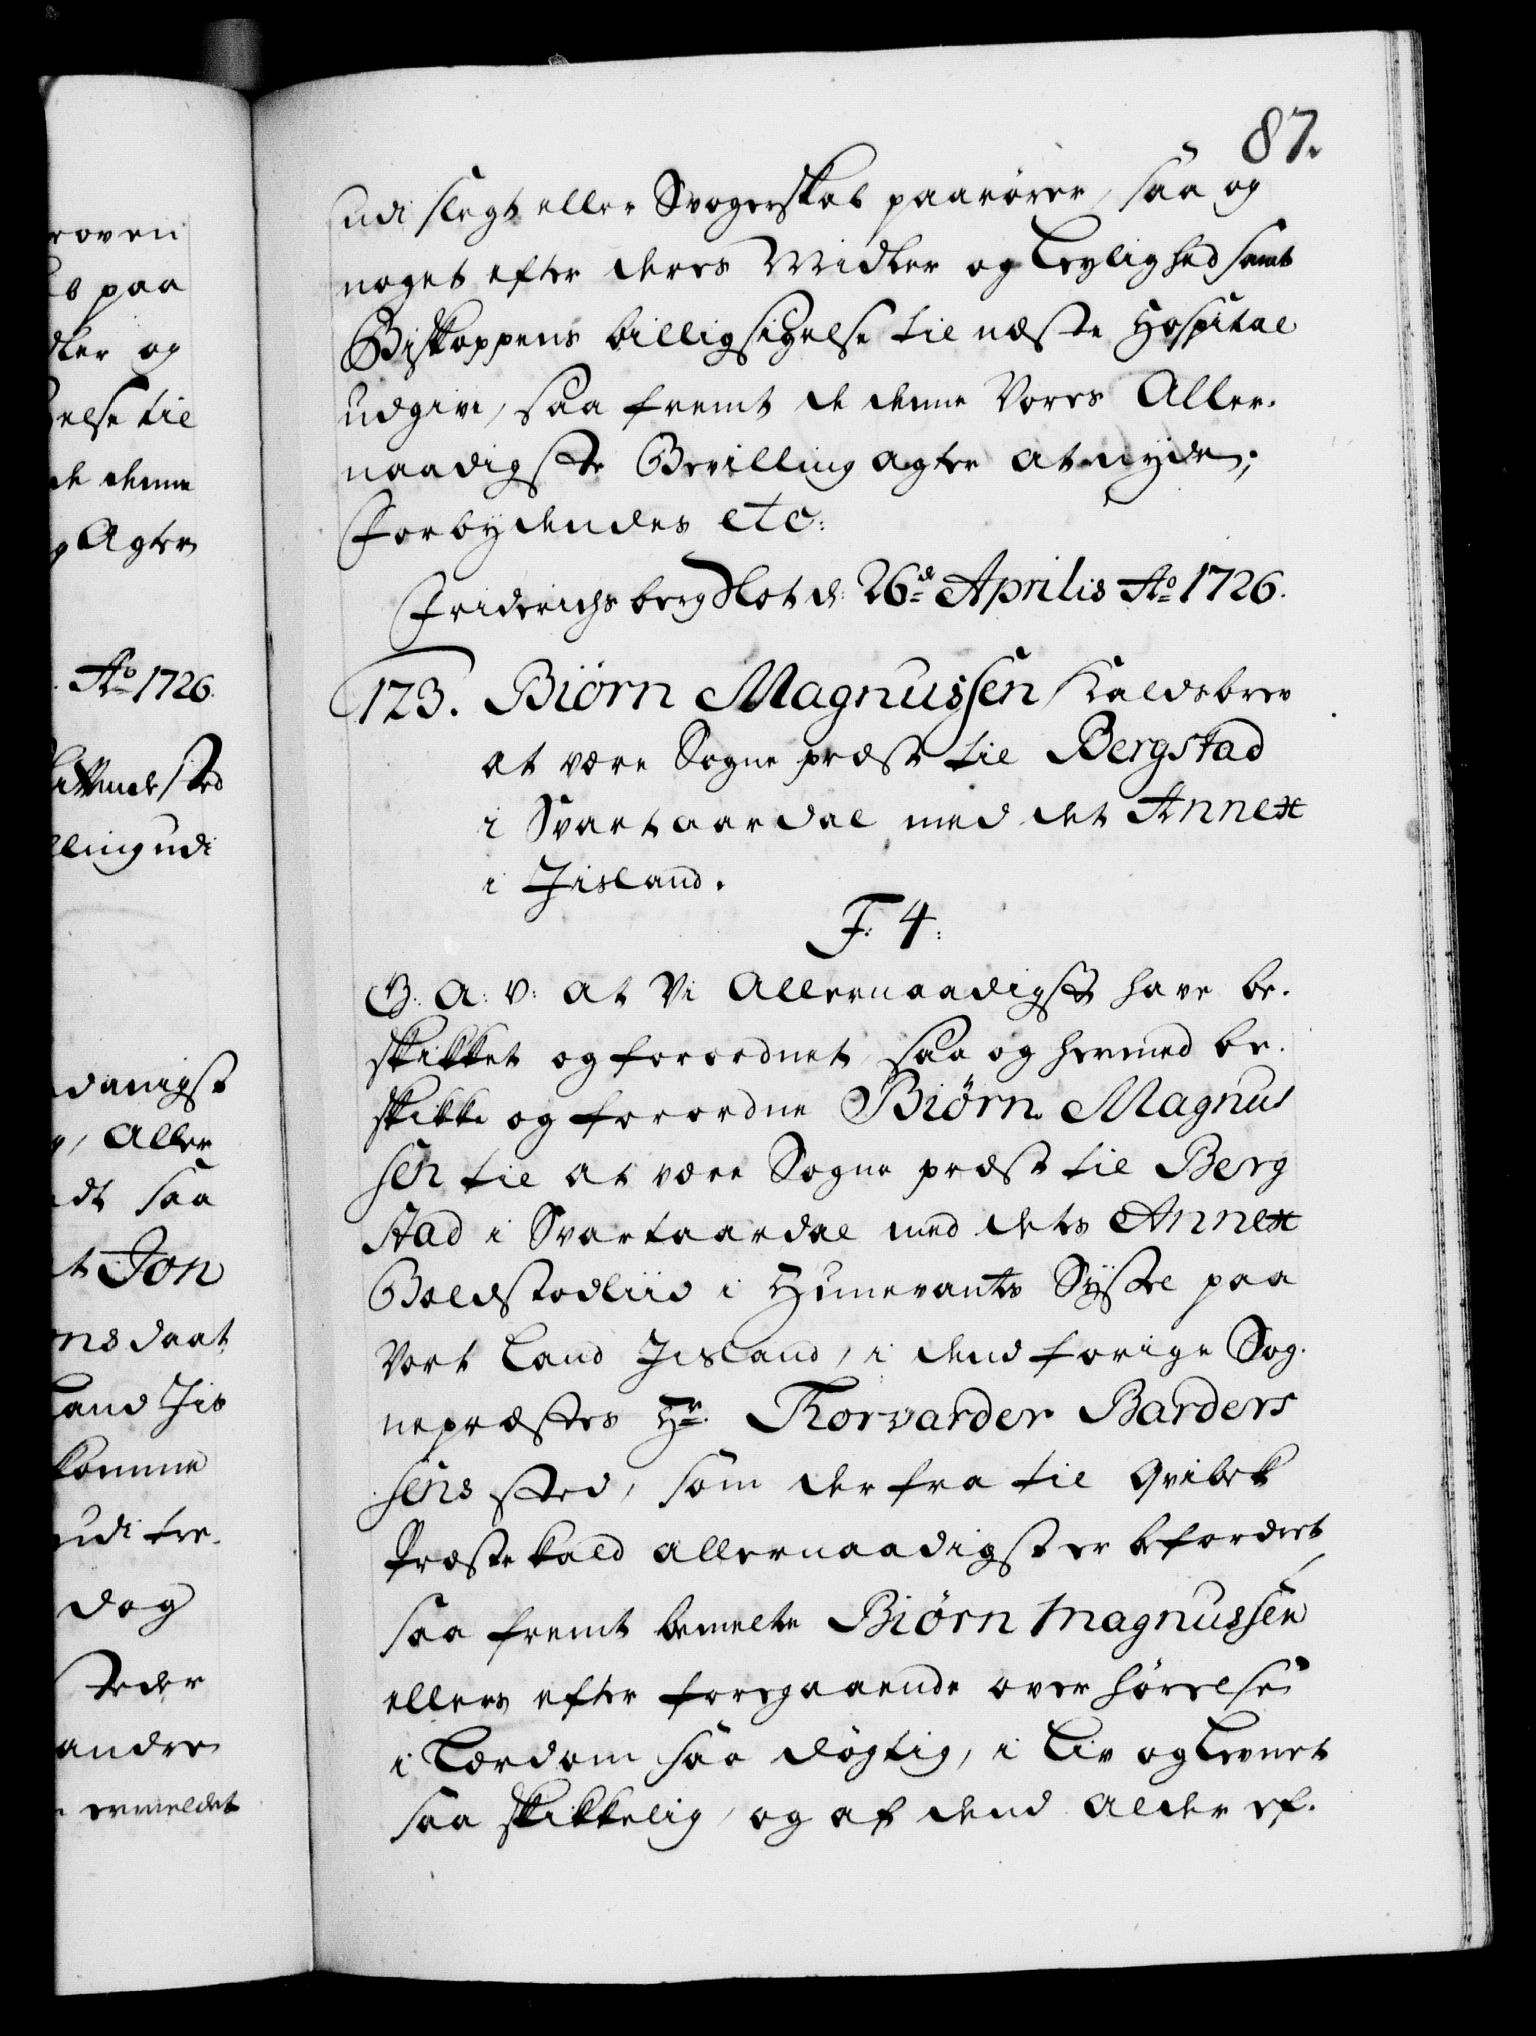 87.
udi slegt eller Svogerskab paarører, saa og
noget efter deres Midler og Leylighed samt
Biskoppens billigsigelse til næste Hospital
udgive, saa fremt de denne Vores Aller-
naadigste Bevilling agter at nyde;
Forbydendes etc:
Friderichsberg Slot d: 26de Aprilis Ao 1726.
123. Biørn Magnussen Kaldsbrev
at være Sogne præst til Bergstad
i Svartaardal med det Annex
i Jisland.
F: 4:
G: A: V: at Vi Allernaadigst have be-
skikket og forordnet, saa og hermed be-
skikke og forordne Biørn Magnus
sen til at være Sogne præst til Berg
stad i Svartaardal med dets Annex
Boldstodliid i Hunevants Syssel paa
Vort Land Jisland, i dend forige Sog-
nepræstes Hr. Thorvarder Barders
sens sted, som der fra til Qvibek
Præste kald allernaadigst er befordret,
saa fremt bemelte Biørn Magnussen
ellers efter foregaaende over hørelse
i Lærdom saa døgtig, i Liv og Levnet
saa skikkelig, og af dend Alder ef-
roven
b paa
dler og
gelse til
de denne
g Agter
Ao 1726.
sted
lling udi
danigst
, Aller
dt saa
t Jon
ns daat
Land Jis
komme
udi tre-
dog
steder
andre
ermeldet